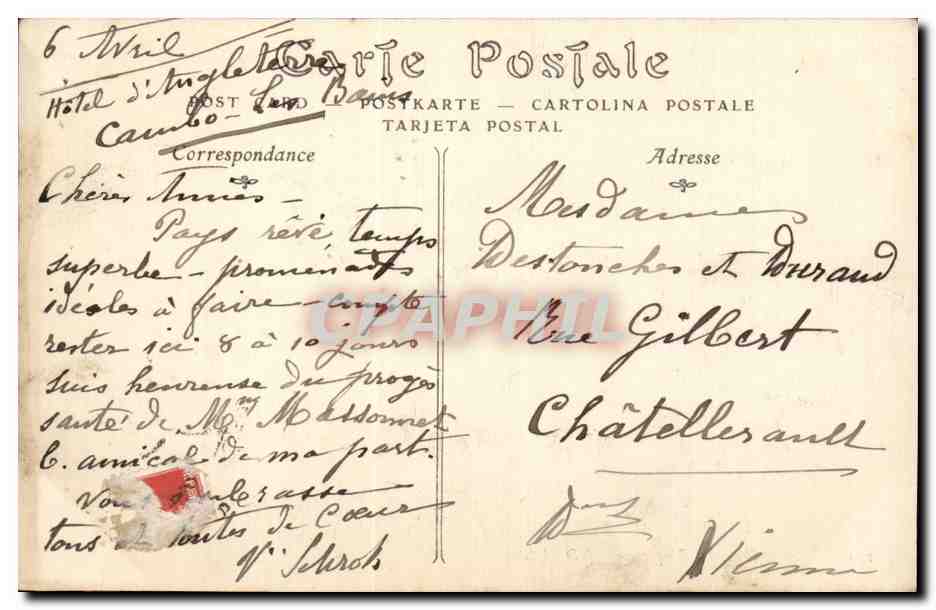 6 Avril
Hôtel d'Angleterre
Cambo-Les Bains
Carte Postale
POST CARD — POSTKARTE — CARTOLINA POSTALE
TARJETA POSTAL
Correspondance
Chères Amies -
Pays rêvé, temps
superbe - promenades
idéales à faire - compte
rester ici 8 à 10 jours
suis heureuse du progès
santé de Massonnet
b. amical de ma part.
Vous embrasse
tous et toutes de Coeur
V. Schrok
Adresse
Mesdames
Destouches et Durand
Rue Gilbert
Châtellerault
Vienne
CPAPHIL